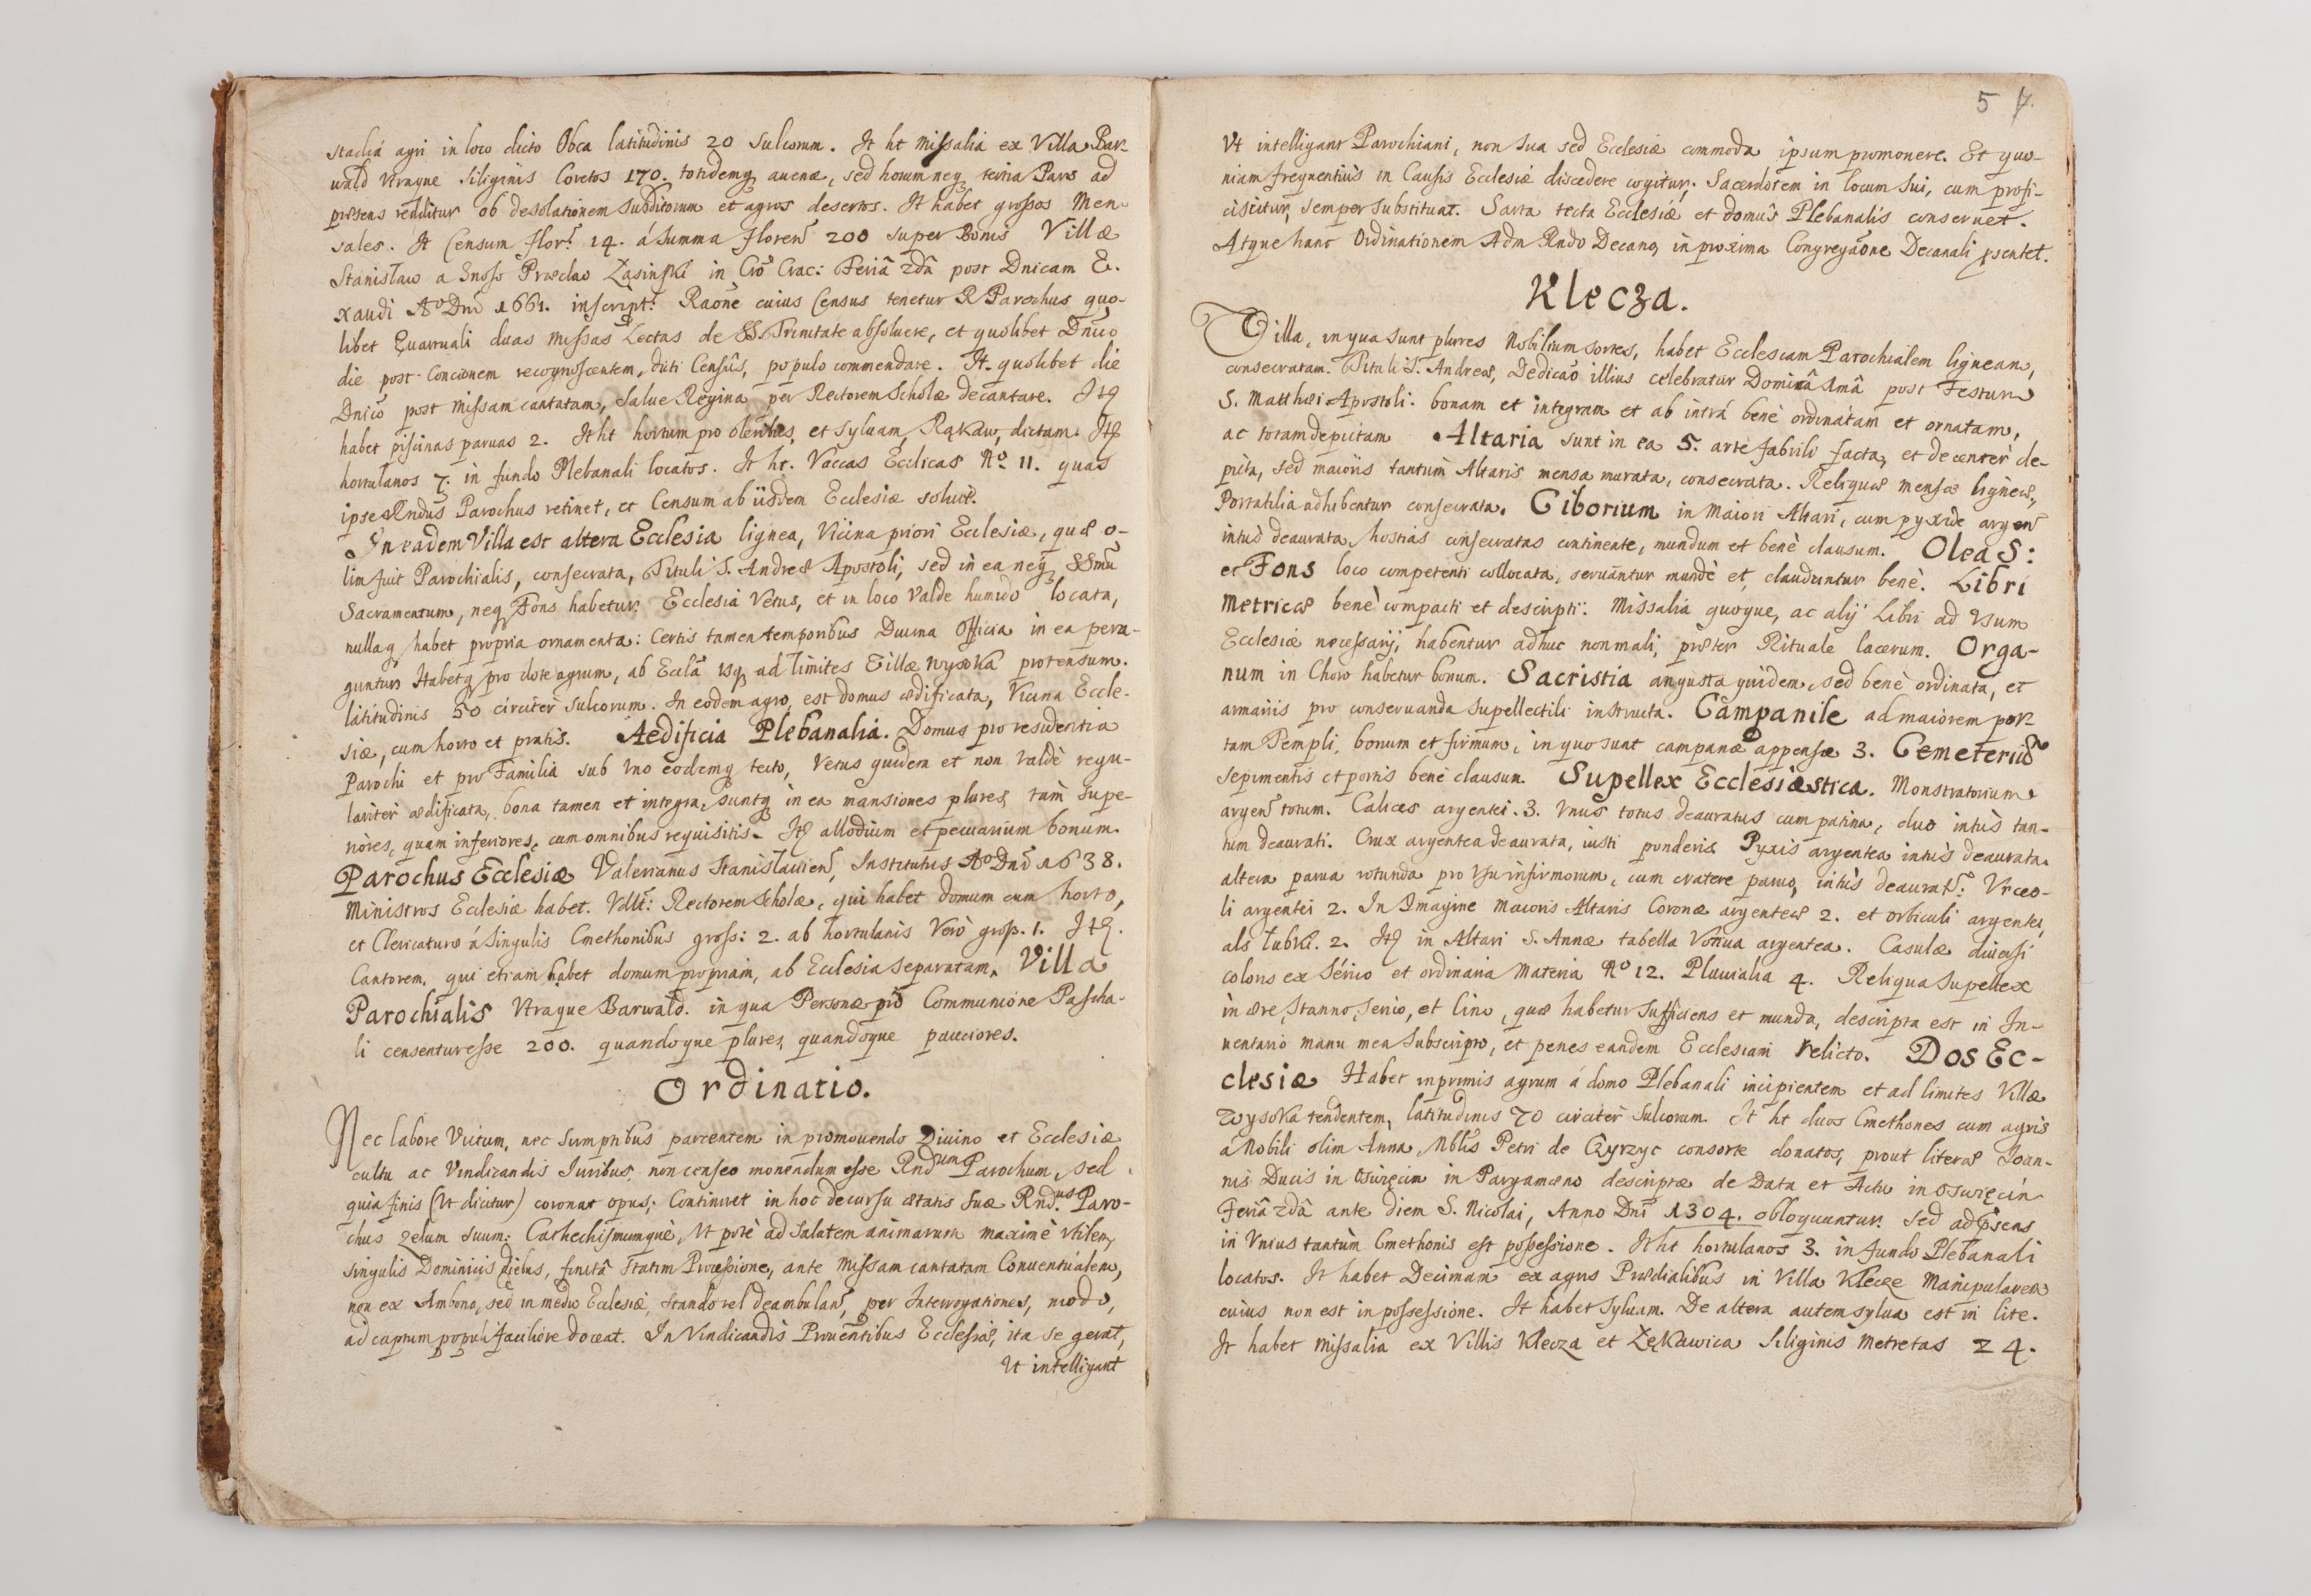 stadia agri in loco dicto Obca latitudinis 20 sulcorum. It ht Missalia ex Villa Bar-
wald utraque Siliginis Coretos 170. totidemq avenæ, sed horum neq tertia Pars ad
præsens redditur ob desolationem subditorum et agros desertos. It habet grossos Men-
sales. It Censum Flor. 14. á Summa Floren 200 super Bonis Villæ
Stanisław a Gnoso Przecław Zasinski in Cro Crac: Feriâ 2dâ post Dnicam E.
xaudi Ao Dni 1661. inscript. Raone cuius Census tenetur R Parochus quo-
libet Quartuali duas Missas Lectas de SS. Trinitate absolvere, et quolibet Dnico
die post Concionem recognoscentem, dicti Censûs, populo commendare. It. quolibet die
Dnico post Missam cantatam, Salve Regina per Rectorem Scholæ decantare. Itq
habet piscinas parvas 2. It ht hortum pro oleribus, et sylvam, Rąkaw, dictam. Itq
hortulanos 7. in fundo Plebanali locatos. It ht. Vaccas Ecclicas No. 11. quas
ipse Rndus Parochus retinet, et Censum ab iisdem Ecclesiæ solvit.
In eadem Villa est altera Ecclesia lignea, Vicina priori Ecclesiæ, quæ o-
lim fuit Parochialis, consecrata, Tituli S. Andreæ Apostoli, sed in ea neq SSmu
Sacramentum, neq Fons habetur. Ecclesia Vetus, et in loco Valde humido locata,
nullaq habet propria ornamenta: Certis tamen temporibus Divina Officia in ea pera-
guntur. Habetq pro dote agrum, ab Eccla usq ad limites Villæ Wysoka protensum.
latitudinis 50 circiter sulcorum. In eodem agro, est domus ædificata, Vicina Eccle-
siæ, cum horto et pratis. Aedificia Plebanalia. Domus pro residentia
Parochi et pro Familia sub uno eodemq tecto, Vetus quidem et non valdè regu-
lariter ædificata, bona tamen et integra, suntq in ea mansiones plures, tam supe-
riores, quam inferiores, cum omnibus requisitis. Itq allodium et pecuarium bonum.
Parochus Ecclesiæ Valerianus Stanislavien, Institutus Ao Dni 1638.
Ministros Ecclesiæ habet. Vdlt: Rectorem Scholæ, qui habet domum cum horto,
et Clericaturæ á singulis Cmethonibus gross: 2. ab hortulanis Verò gross. 1. Itq.
Cantorem, qui etiam habet domum propriam, ab Ecclesia separatam. Villa
Parochialis Utraque Barwald. in qua Personæ pro Communione Pascha-
li censentur esse 200. quandoque plures, quandoque pauciores.
Ordinatio.
Nec labore Victum, nec sumptibus parcentem in promovendo Divino et Ecclesiæ
cultu ac Vindicandis Iuribus, non censeo monendum esse Rndum Parochum, sed
quia finis (Ut dicitur) coronat opus; Continuet in hoc decursu ætatis suæ Rndus. Paro-
chus zelum suum: Cathechismumquè, Ut potè ad Salutem animarum maximè Utilem,
singulis Dominicis diebus, finitâ statim Processione, ante Missam cantatam Conventualem,
non ex Ambona, sed in medio Ecclesiæ, stando vel deambulan, per Interrogationes, modo,
ad captum populi faciliore doceat. In Vindicandis Proventibus Ecclesiæ, ita se gerat,
Ut intelligant
5 7.
Ut intelligant Parochiani, non sua sed Ecclesiæ commoda ipsum promovere. Et quo-
niam frequentiùs in Causis Ecclesiæ discedere cogitur, Sacerdotem in locum sui, cum profi-
ciscitur, semper substituat. Sarta tecta Ecclesiæ et domûs Plebanalis conservet.
Atque hanc Ordinationem Adm Rndo Decano, in proxima Congregaone Decanali psentet.
Klecza.
Villa, in qua sunt plures Nobilium sortes, habet Ecclesiam Parochialem ligneam,
consecratam. Tituli S. Andreæ, Dedicao illius celebratur Dominicâ 1mâ post Festum
S. Matthæi Apostoli. bonam et integram et ab intrá benè ordinatam et ornatam,
ac totam depictam. Altaria sunt in ea 5. arte fabrili facta, et decenter de-
picta, sed maioris tantum Altaris mensa murata, consecrata. Reliquæ mensæ ligneæ,
Portatilia adhibentur consecrata. Ciborium in Maiori Altari, cum pyxide argen
intus deaurata, hostias consecratas continente, mundum et benè clausum. Olea S:
et Fons loco competenti collocata, servantur mundè et clauduntur benè. Libri
Metrices benè compacti et descripti. Missalia quoque, ac alij Libri ad Usum
Ecclesiæ necessarij, habentur adhuc non mali, præter Rituale lacerum. Orga-
num in Choro habetur bonum. Sacristia angusta quidem, sed benè ordinata, et
armariis pro conservanda supellectili instructa. Campanile ad maiorem por
tam Templi, bonum et firmum, in quo sunt campanæ appensæ 3. Cemeteriu
sepimentis et portis benè clausum. Supellex Ecclesiastica. Monstratorium
argen totum. Calices argentei. 3. Unus totus deauratus cum patina, duo intùs tan-
tum deaurati. Crux argentea deaurata, iusti ponderis. Pyxis argentea intùs deaurata.
altera parva rotunda pro Usu infirmorum, cum cratere parvo, intùs deaurat. Urceo-
li argentei 2. In Imagine Maioris Altaris Coronæ argenteæ 2. et orbiculi argentei,
als Tubki. 2. Itq in Altari S. Annæ tabella Votiva argentea. Casulæ diversi
coloris ex Serico et ordinaria Materia No 12. Pluvialia 4. Reliqua Supellex
in ære, Stanno, Serico, et lino, quæ habetur sufficiens et munda, descripta est in In-
ventario manu mea subscripto, et penes eandem Ecclesiam relicto. Dos Ec-
clesiæ Habet inprimis agrum á domo Plebanali incipientem et ad limites Villæ
Wysoka tendentem, latitudinis 70 circiter sulcorum. It ht duos Cmethones cum agris
á Nobili olim Anna, Nblis Petri de Gyrzyc consorte donatos, prout literæ Joan-
nis Ducis in Oswięcim in Pargameno descriptæ de Data et Actu in Oswięcin
Feriâ 2dâ ante diem S. Nicolai, Anno Dni 1304. obloquuntur. Sed ad psens
in Unius tantùm Cmethonis est possessione. It ht hortulanos 3. in fundo Plebanali
locatos. It habet Decimam ex agris Prædialibus in Villa Klecze Manipularem
cuius non est in possessione. It habet sylvam. De altera autem sylva est in lite.
It habet Missalia ex Villis Klecza et Zękawica Siliginis Metretas 24.